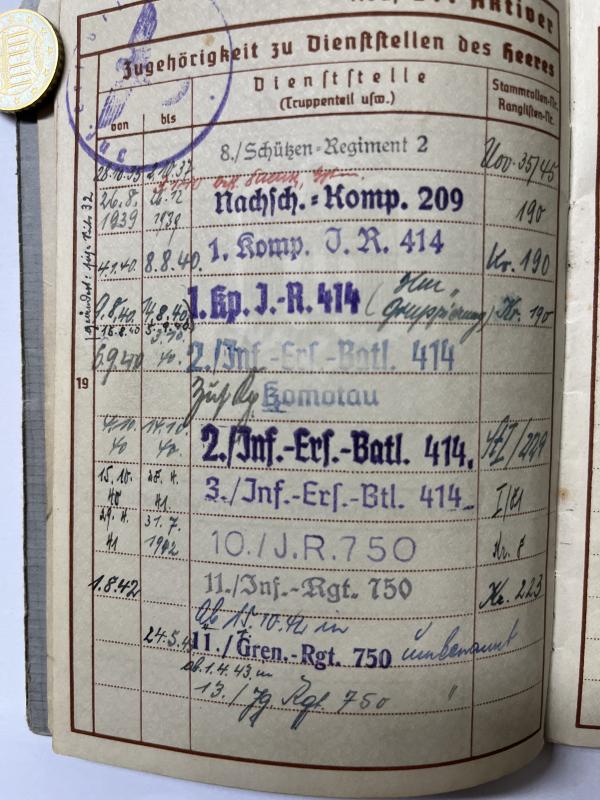 Aktiver
Zugehörigkeit zu Dienststellen des Heeres
von bis Dienststelle (Truppenteil usw.) Stammrollen-Nr. Ranglisten-Nr.
8./Schützen-Regiment 2
26.8. 1939 26.12 1939 Nachsch.-Komp. 209 190
4.1.40. 8.8.40. 1. Komp. J. R. 414 Kr. 190
9.8.40. 1. Kp. J.-R. 414 ( gruppierung) Kr. 190
6.9.40 2./Inf.-Ers.-Batl. 414
19 Komotau
2./Inf.-Ers.-Batl. 414.
15.10. 40 28.4. 41 3./Inf.-Ers.-Btl. 414
29.4. 41 31.7. 1942 10./J.R.750 Kr. 8
1.8.42 11./Inf.-Rgt. 750 Kr. 223
Ab 15.10.42 in
24.5.43 11./Gren.-Rgt. 750 umbenannt
ab 1.4.43 in
13./Jg. Rgt. 750 "